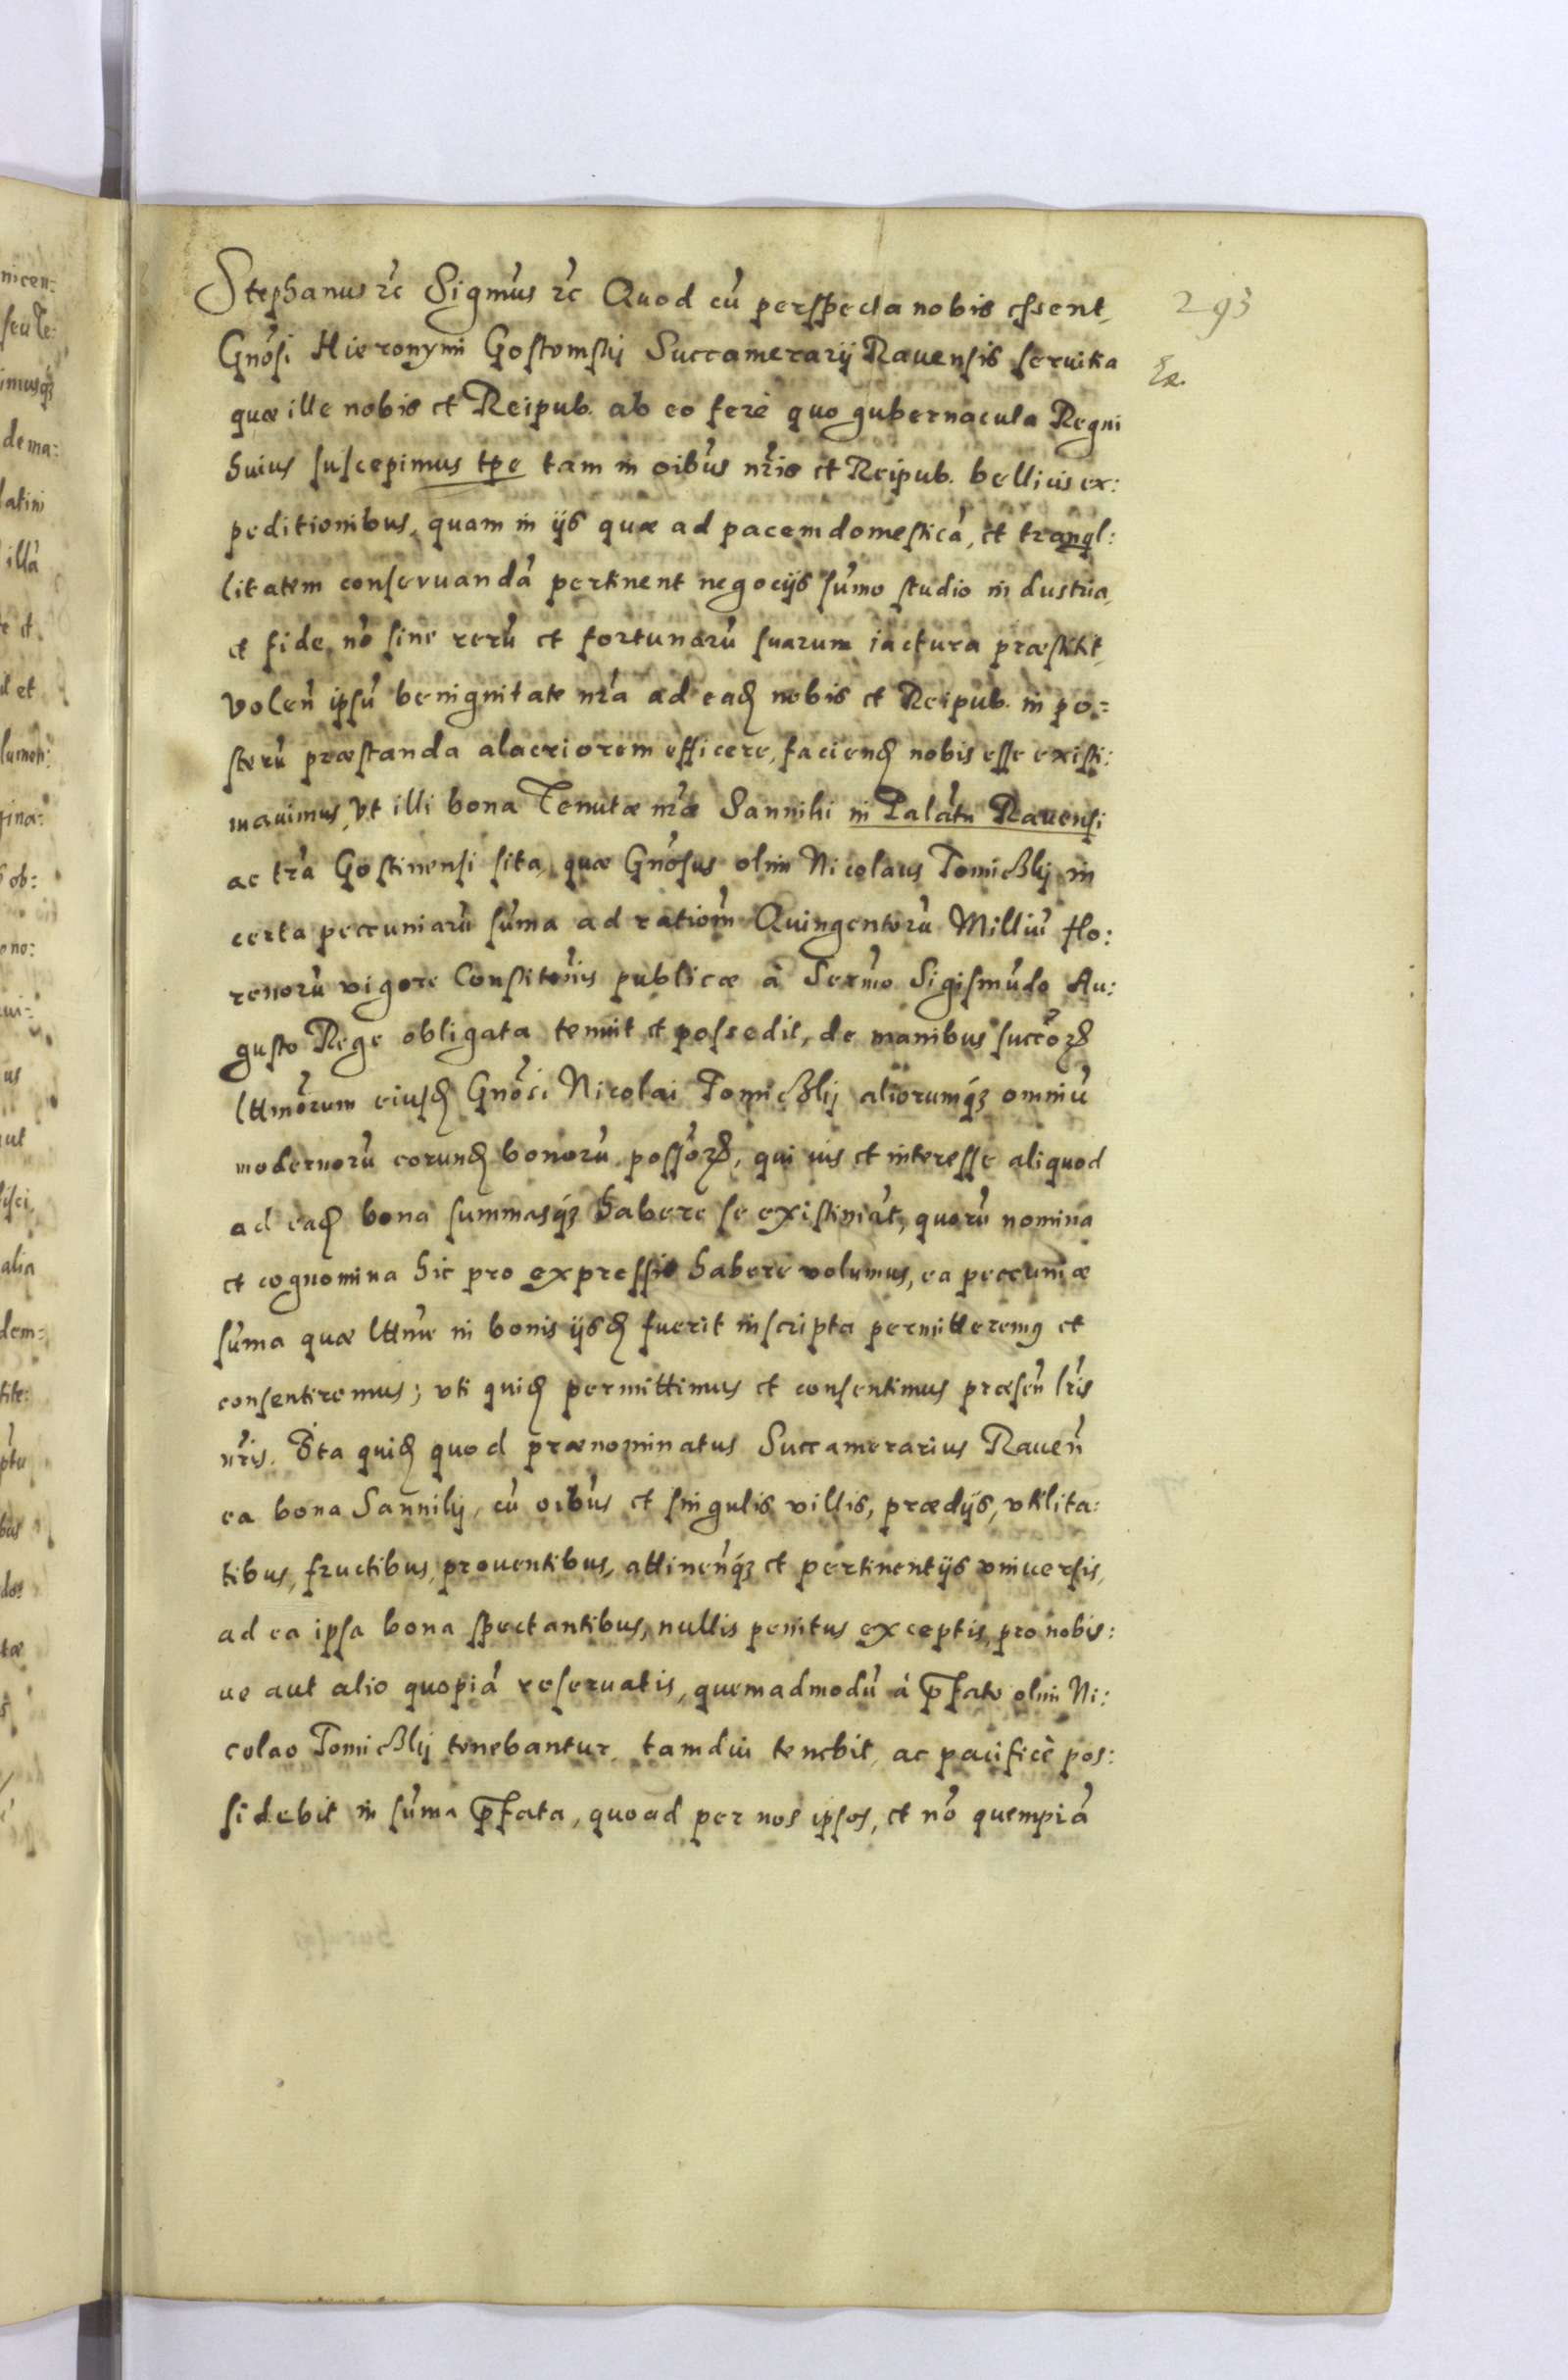 Stephanus etc Sigmus etc Quod cū perspecta nobis essent,
293
Gnosi Hieronymi Gostomskij Succamerarij Rauensis seruitia
quæ ille nobis et Reipub. ab eo ferè quo gubernacula Regni
huius suscepimus tpe tam in oibus nris et Reipub. bellicis ex:
peditionibus, quam in ijs quæ ad pacem domesticā, et tranql:
litatem conseruandā pertinent negocijs sūmo studio industria,
et fide, nō sine rerū et fortunarū suarum iactura præstitit,
Volen ipsū benignitate nra ad eadē nobis et Reipub. in po=
sterū præstanda alacriorem efficere, faciend nobis esse existi:
mauimus, Vt illi bona Tenutæ nræ Sanniki in Palatu Rauensi
ac tra Gostinensi sita, quæ Gnosus olim Nicolaus Tomiczkij in
certa peccuniarū sūma ad rationm Quingentorū Milliū flo:
renorū vigore Consitonis publicæ à Sermo Sigismūdo Au:
gusto Rege obligata tenuit et possedit, de manibus succorꝝ
lttmorum eiusd Gnosi Nicolai Tomiczkij aliorumqꝫ omniū
modernorū eorund bonorū possorꝝ, qui ius et interesse aliquod
ad ead bona summasqꝫ habere se existimāt, quorū nomina
et cognomina hic pro expressis habere volumus, ea peccuniæ
sūma quæ lttme in bonis ijsd fuerit inscripta permitteremꝰ et
consentiremus; vti quid permittimus et consentimus præsen lris
nris. Ita quid quod prænominatus Succamerarius Rauen
ea bona Sannikij, cū oibus et singulis villis, prædijs, vtilita:
tibus, fructibus, prouentibus, attinenqꝫ et pertinentijs vniuersis,
ad ea ipsa bona spectantibus, nullis penitus exceptis, pro nobis:
ue aut alio quopiā reseruatis, quemadmodū à p̄fato olim Ni:
colao Tomiczkij tenebantur, tamdiu tenebit, ac pacificè pos:
sidebit in sūma p̄fata, quoad per nos ipsos, et nō quempiā